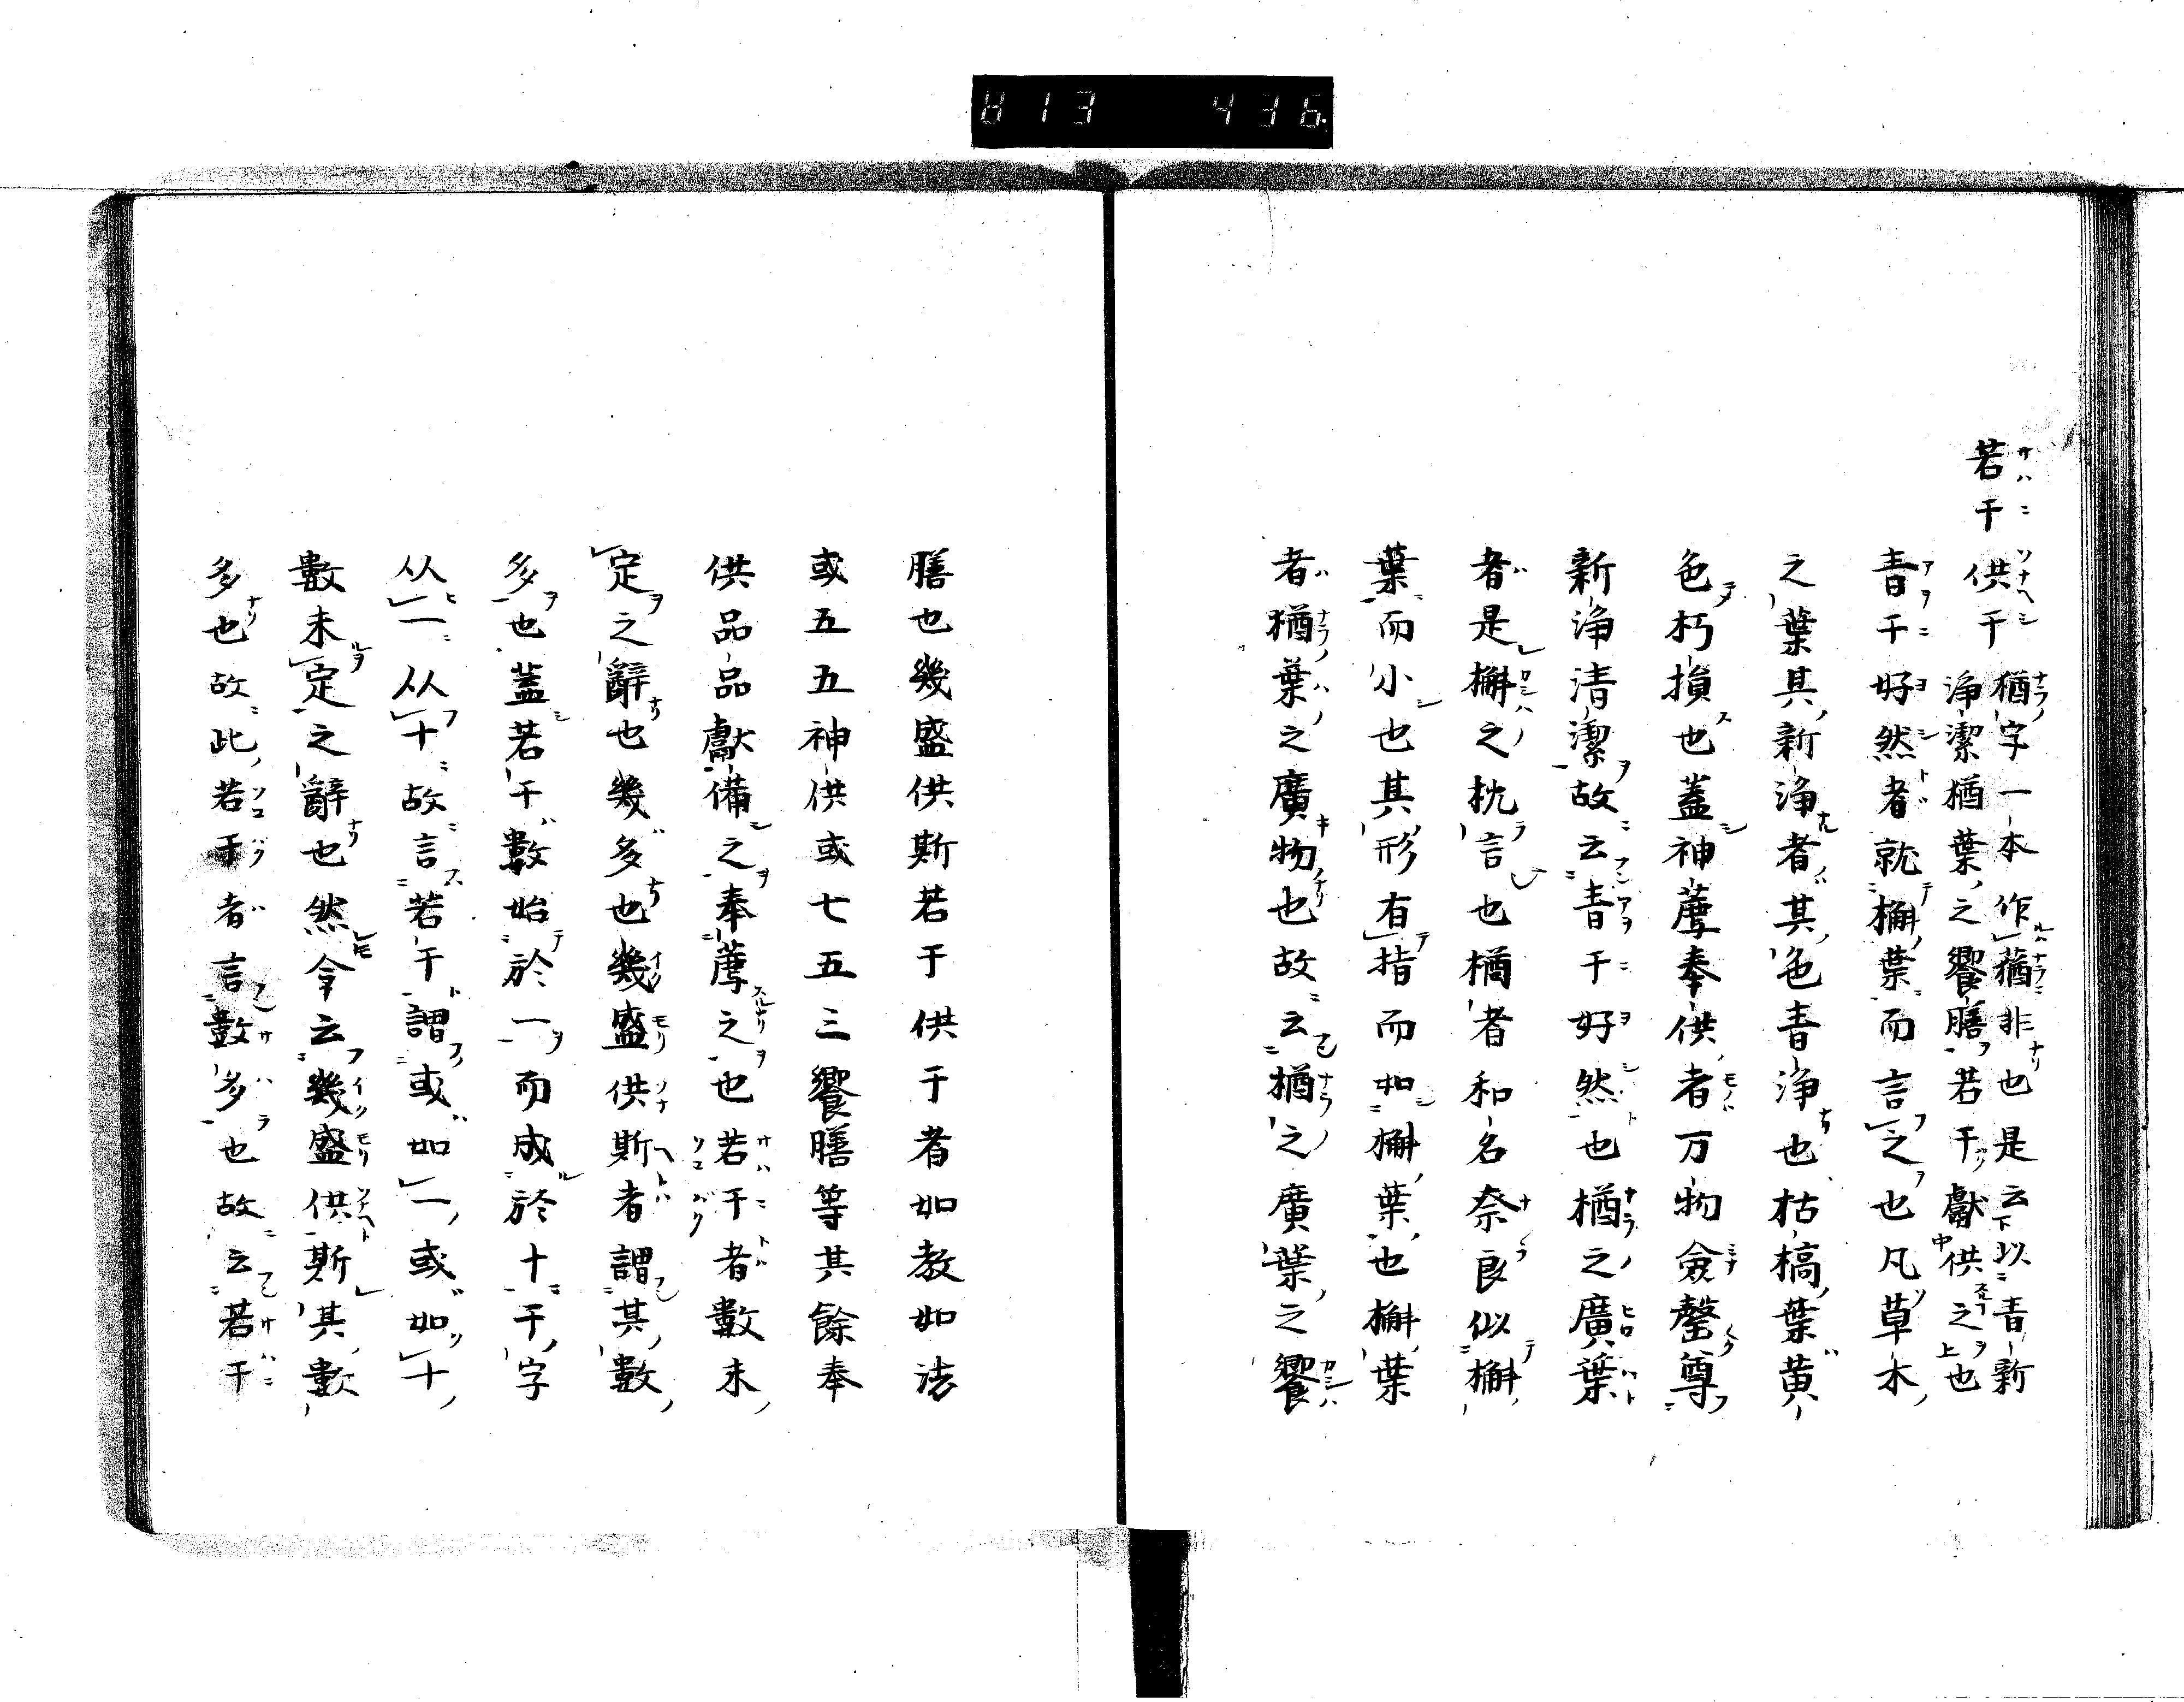 813 436
若干供干 楢字一本作蕕非也是云以青新
淨潔楢葉之饗膳若干獻供之也
青干好然者就槲葉而言之也凡草木
之葉其新淨者其色青淨也枯槁葉黄
色朽損也蓋神薦奉供者万物僉馨尊
新淨清潔故云青干好然也楢之廣葉
者是槲之枕言也楢者和名奈良似槲
葉而小也其形有指而如槲葉也槲葉
者楢葉之廣物也故云楢之廣葉之饗
膳也幾盛供斯若于供于者如教如法
或五五五神供或七五三饗膳等其餘奉
供品品獻備之奉薦之也若干者數未
定之辭也幾多也幾盛供斯者謂其數
多也蓋若干數始於一而成於十干字
从一从十故言若干謂或如一或如十
數未定之辭也然今云幾盛供斯其數
多也故此若于者言數多也故云若干